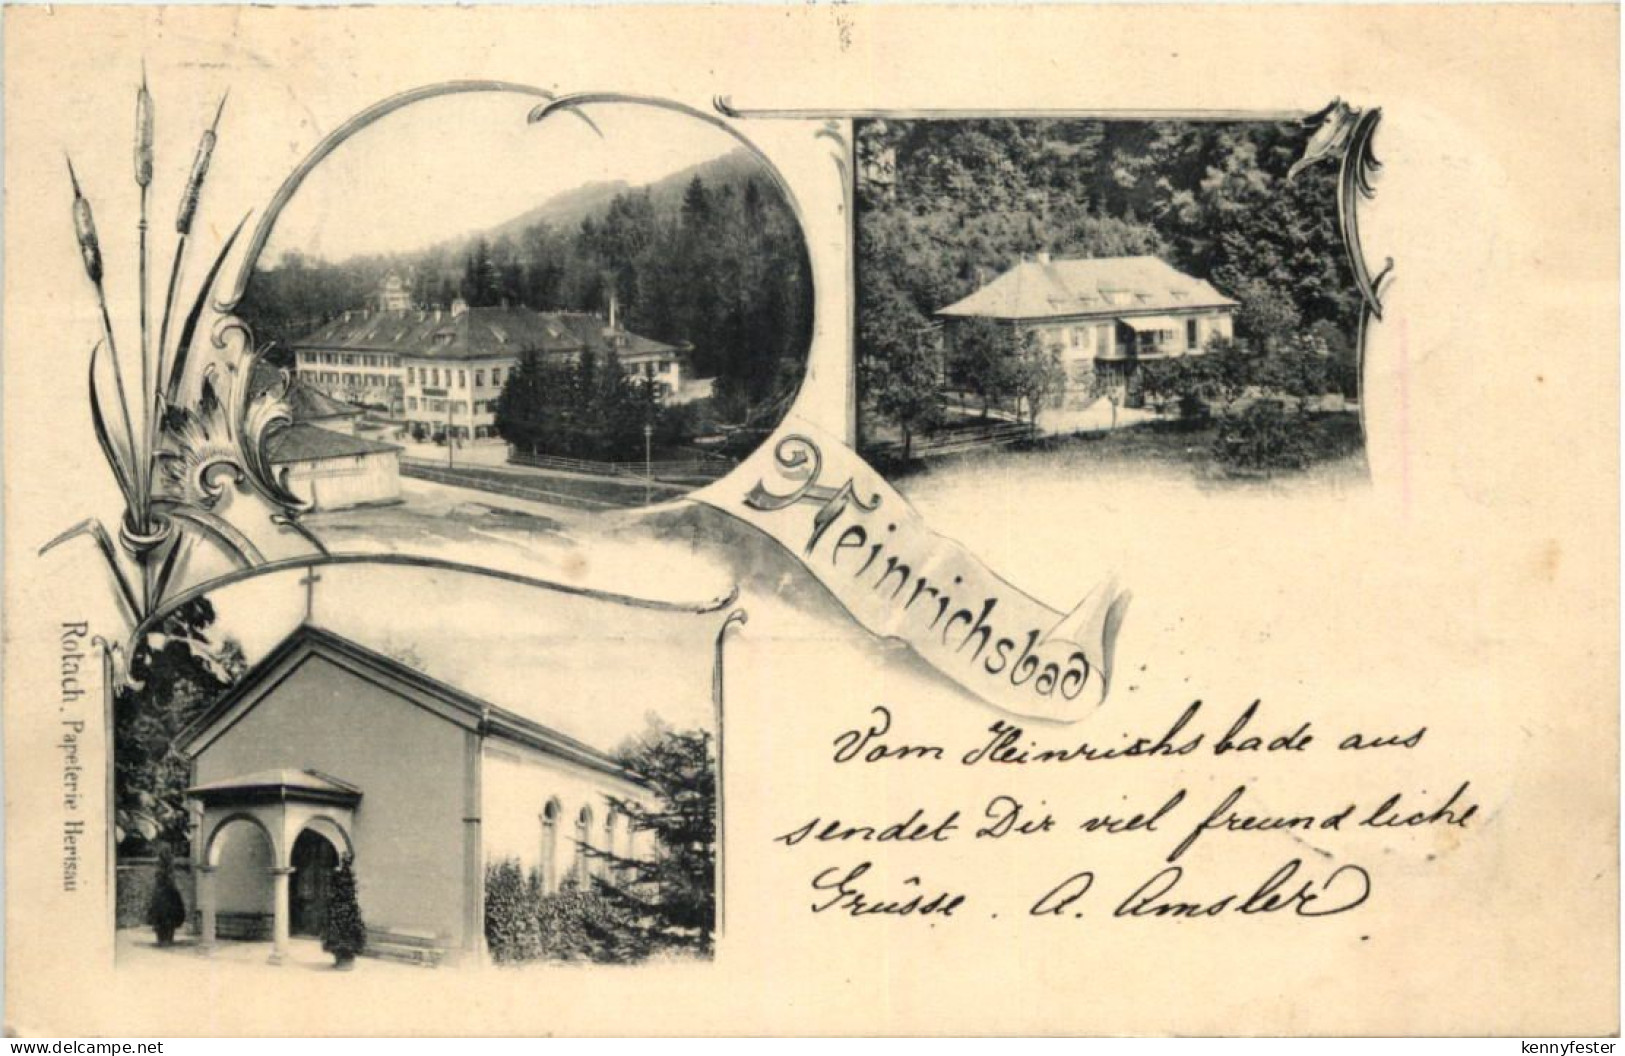 Heinrichsbad
Vom Heinrichsbade aus
sendet Dir viel freundliche
Grüsse. A. Amsler
Rotach, Papeterie Herisau
www.delcampe.net
kennyfester